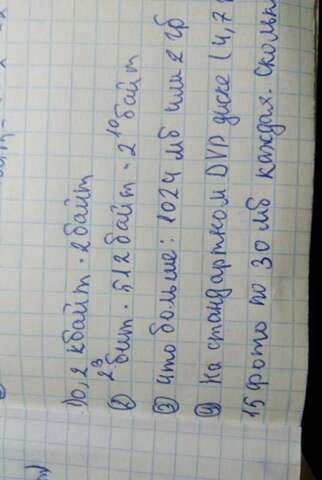 1) 0,2 кбайт · 2 байт
② 2³ бит · 512 байт · 2¹⁰ байт
③ что больше: 1024 мб или 2 гб
④ На стандартном DVD диске (4,7
15 фото по 30 мб каждая. Сколь